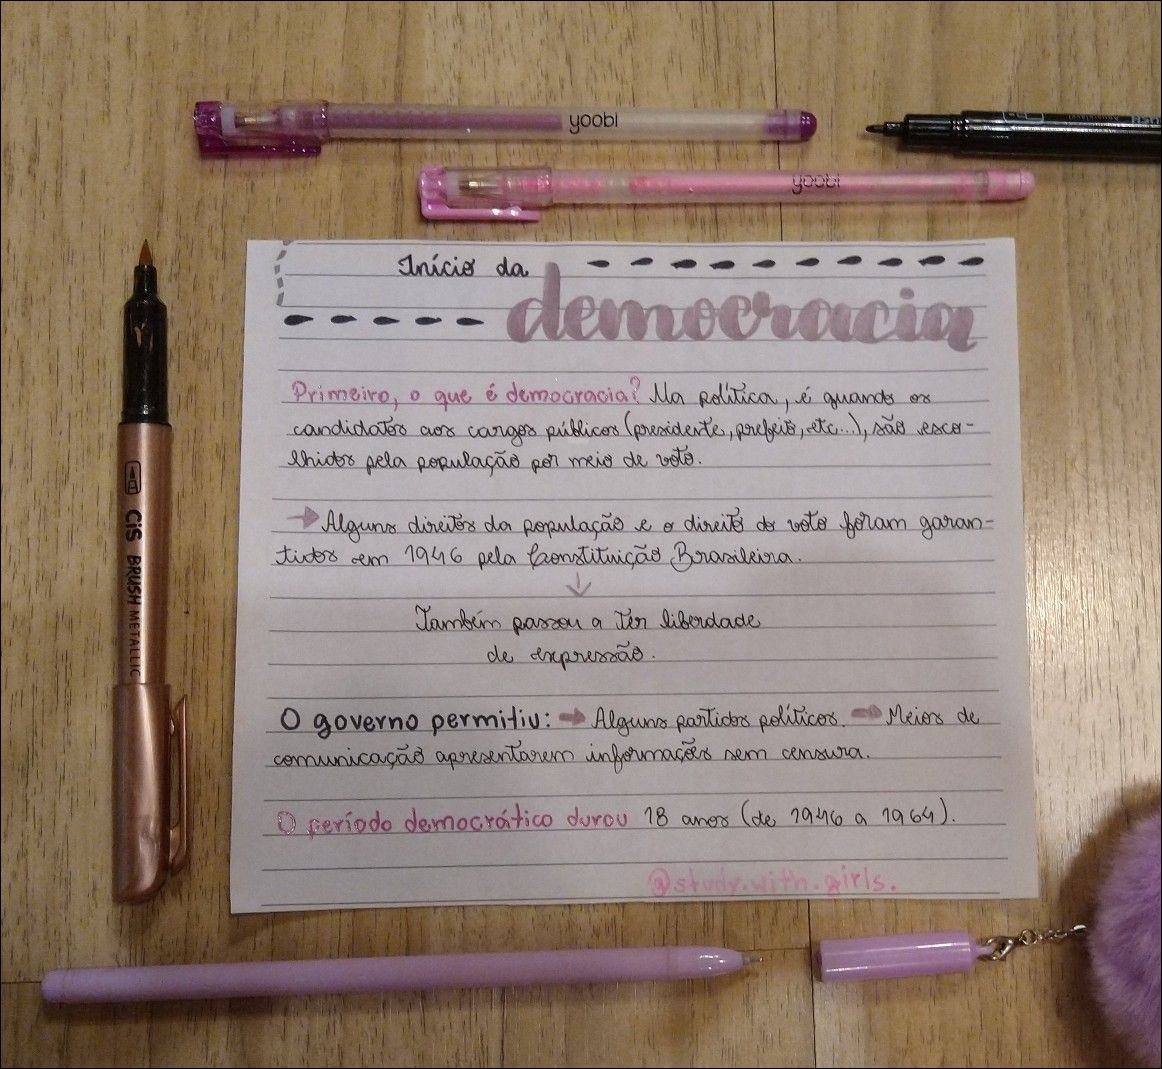 yoobi
yoobi
CiS BRUSH METALLIC
Início da
democracia
Primeiro, o que é democracia? Na política, é quando os
candidatos aos cargos públicos (presidente, prefeito, etc...), são esco-
lhidos pela população por meio de voto.
Alguns direitos da população e o direito do voto foram garan-
tidos em 1946 pela Constituição Brasileira.
Também passou a ter liberdade
de expressão.
O governo permitiu: → Alguns partidos políticos. → Meios de
comunicação apresentarem informações sem censura.
O período democrático durou 18 anos (de 1946 a 1964).
@study.with.girls.